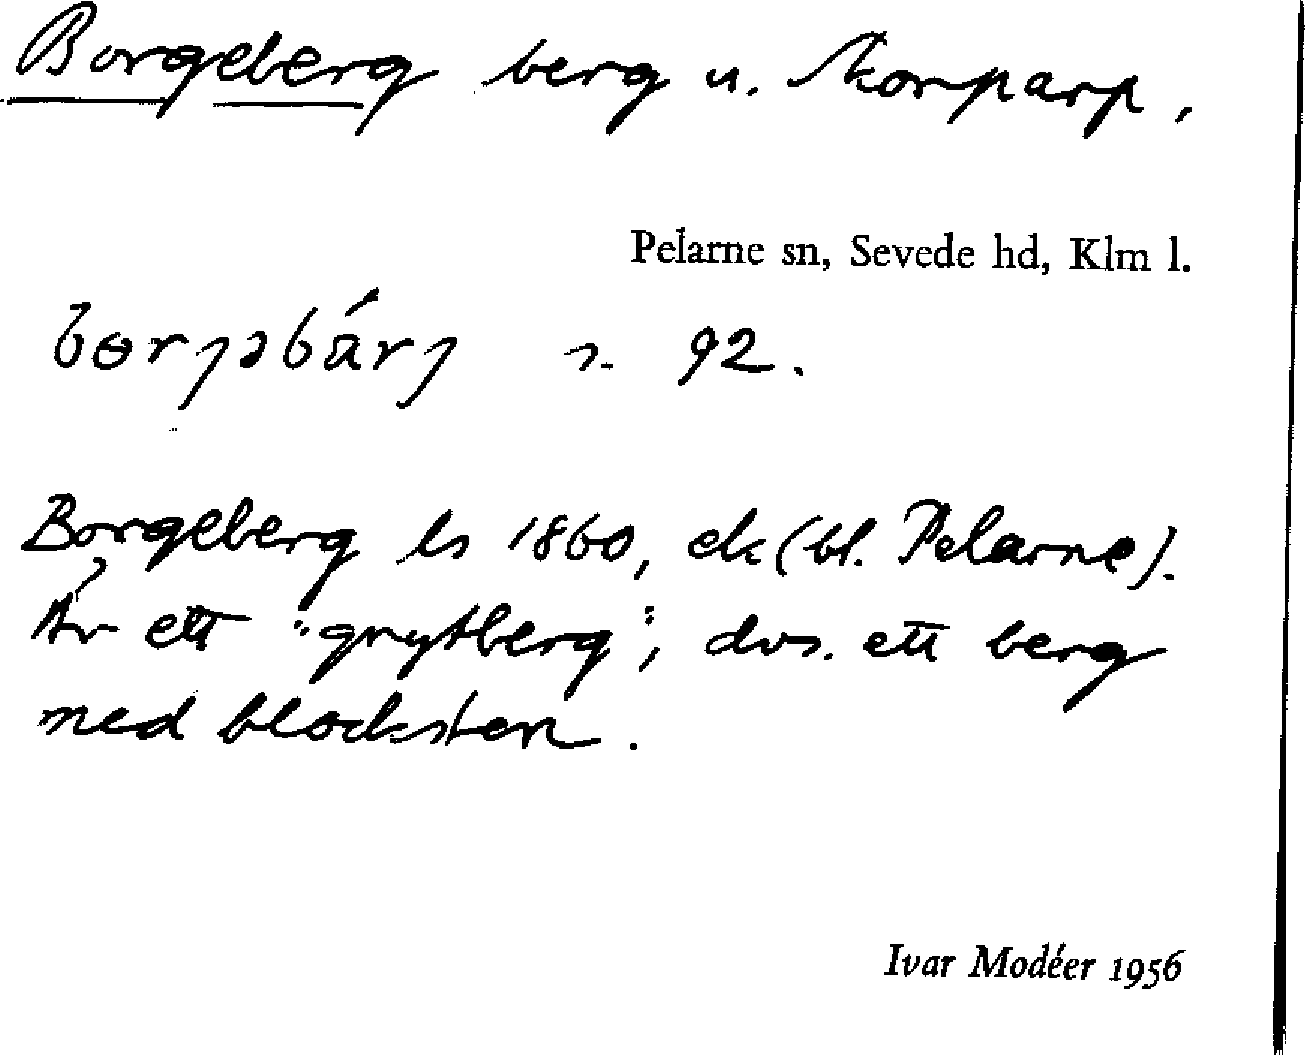 Borgeberg berg u. Skorparp,
Pelarne sn, Sevede hd, Klm l.
s. 92.
Borgeberg ls 1860, ek (bl. Pelarne).
Är ett "grytberg", dvs. ett berg
med blocksten.
Ivar Modéer 1956